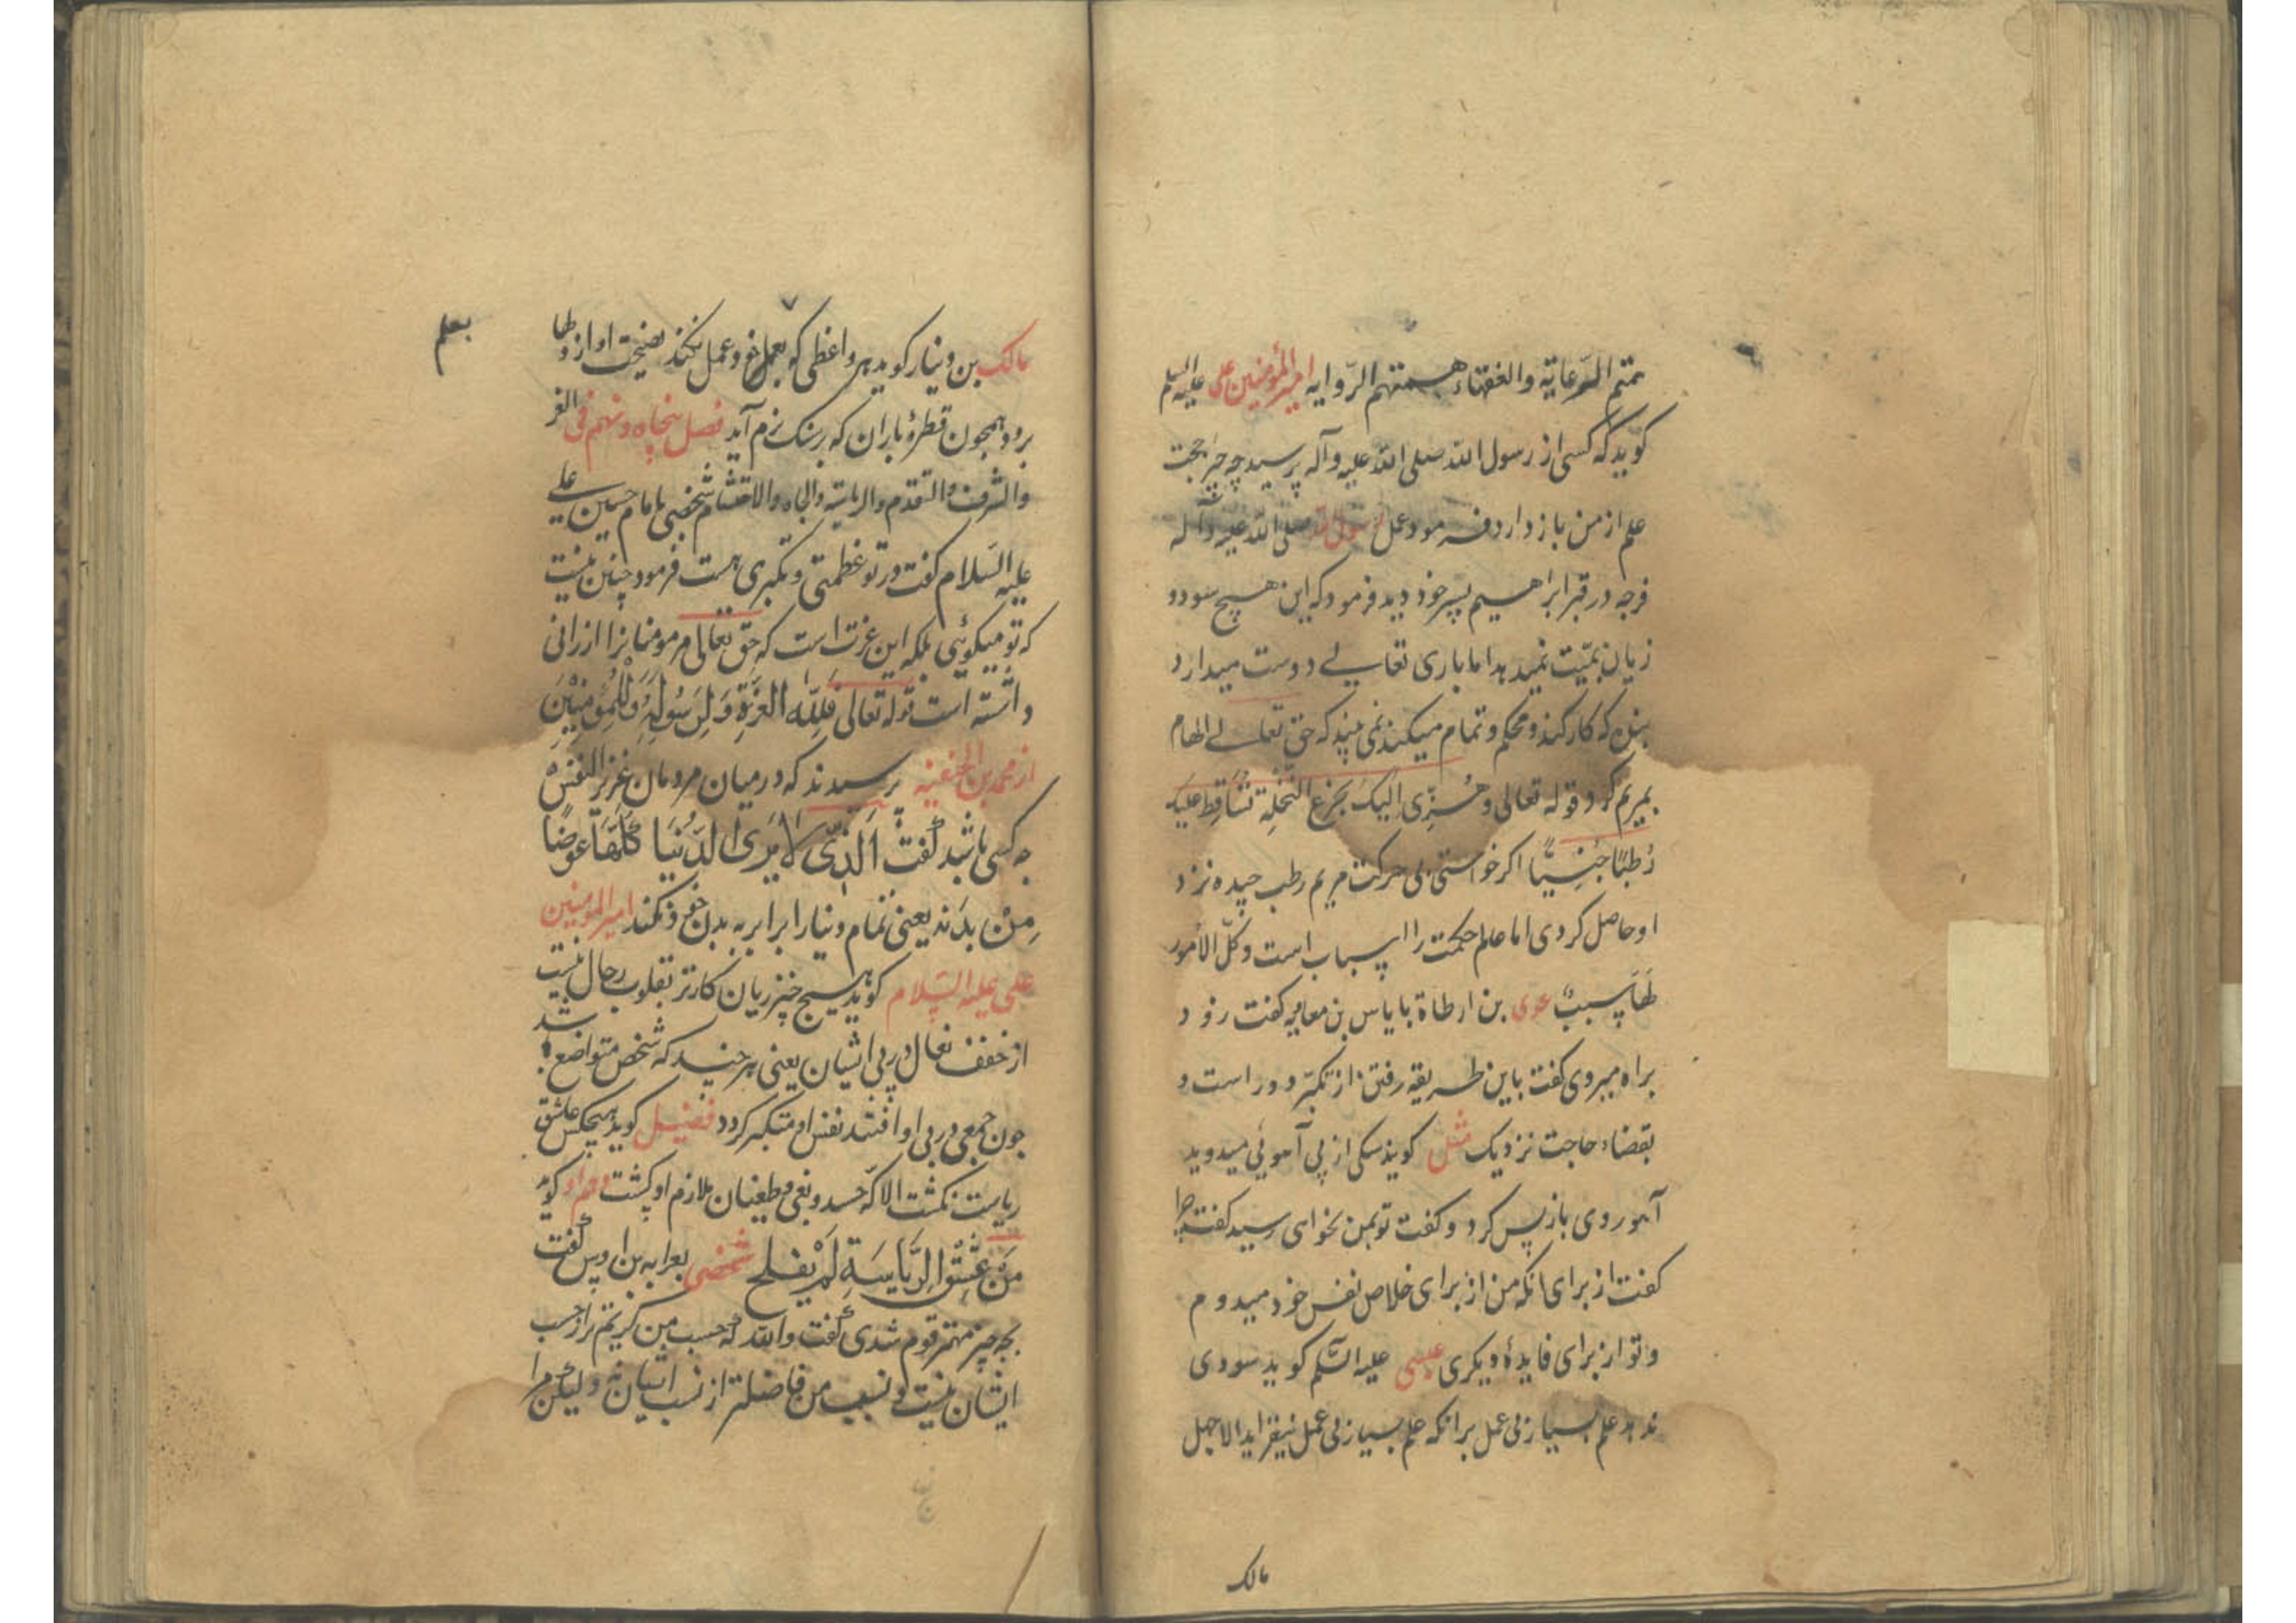 همتهم الرعایة والفقهاء همتهم الروایه امیر المؤمنین علی علیه السلم
کوید که کسی از رسول الله صلی الله علیه وآله پرسید چه چیز حجت
علم از من باز دارد فرمود عمل رسول الله صلی الله علیه وآله
فرجه در قبر ابراهیم پسر خود دید فرمود که این هیچ سود و
زیان بمیّت نمیدهد اما باری تعالی دوست میدارد
بنده که کار کند و محکم و تمام میکند نمی بینید که حق تعالی الهام
بمریم کرد قوله تعالی وهُزّی اِلیکِ بجِزعِ النّخلةِ تُسَاقِط عَلیکِ
رُطَبًا جَنِیًّا اکر خواستی بی حرکت مریم رطب چیده نزد
او حاصل کردی اما عالم حکمت را اسباب است وکلّ الأمور
لَهَا سببٌ عدی بن ارطاة بایاس بن معاویه کفت زود
براه میروی کفت باین طریقه رفتن از تکبّر دور است و
بقضاء حاجت نزدیک مثل کویند سکی از پی آهویی میدوید
آهو روی باز پس کرد و کفت تو بمن نخواهی رسید کفت چرا
کفت از برای انکه من از برای خلاص نفس خود میدوم
و تو از برای فایدهٔ دیکری عیسی علیه السّلم کوید سودی
ندهد علم بسیار بی عمل برانکه علم بسیار بی عمل نیفزاید الا جهل
مالک
بعلم
مالک بن دینار کوید هر واعظی کو بعمل خود عمل نکند نصیحت او از دلها
برود همچون قطرهٔ باران که بر سنک نرم آید فصل پنجاه و نهم فی العز
والشرف والتقدم والریاسة والجاه والاحتشام شخصی با امام حسین علی
علیه السَلام کفت در تو عظمتی و تکبری هست فرمود چنین نیست
که تو میکوئی بلکه این عزت است که حق تعالی مر مومنانرا ارزانی
داشته است قوله تعالی فَلِلّه العزّةِ وَلِرَسُولِهِ وَلِلْمُؤمِنِیْنَ
از محمد بن الحنفیه پرسیدند که در میان مردمان عزیز النفس
چه کسی باشد گفت اَلّذی لا یَرَی الدّنُیَا کُلّهَا عوضًا
مِنْ بدَنه یعنی تمام دنیا را برابر به بدن خود نکند امیر المومنین
علی علیه السّلام کوید هیچ چیز زیان کارتر بقلوب رجال نیست
از خفف نعال در پی ایشان یعنی هر چند که شخص متواضع باشد
چون جمعی در پی او افتند نفس او متکبر کردد فضیل کوید هیچکس عاشق
ریاست نکشت الا که حسد و بغی و طغیان ملازم او کشت وهم او کوید
مَنْ عَشِقَ الرّیَاسَةِ لَمْ یفلح شخصی بعرابه بن اوس گفت
بچه چیز مهتر قوم شدی گفت والله که حسب من کریم تر از حسب
ایشان نیست و نسب من فاضلتر از نسب ایشان نه ولیکن مرا